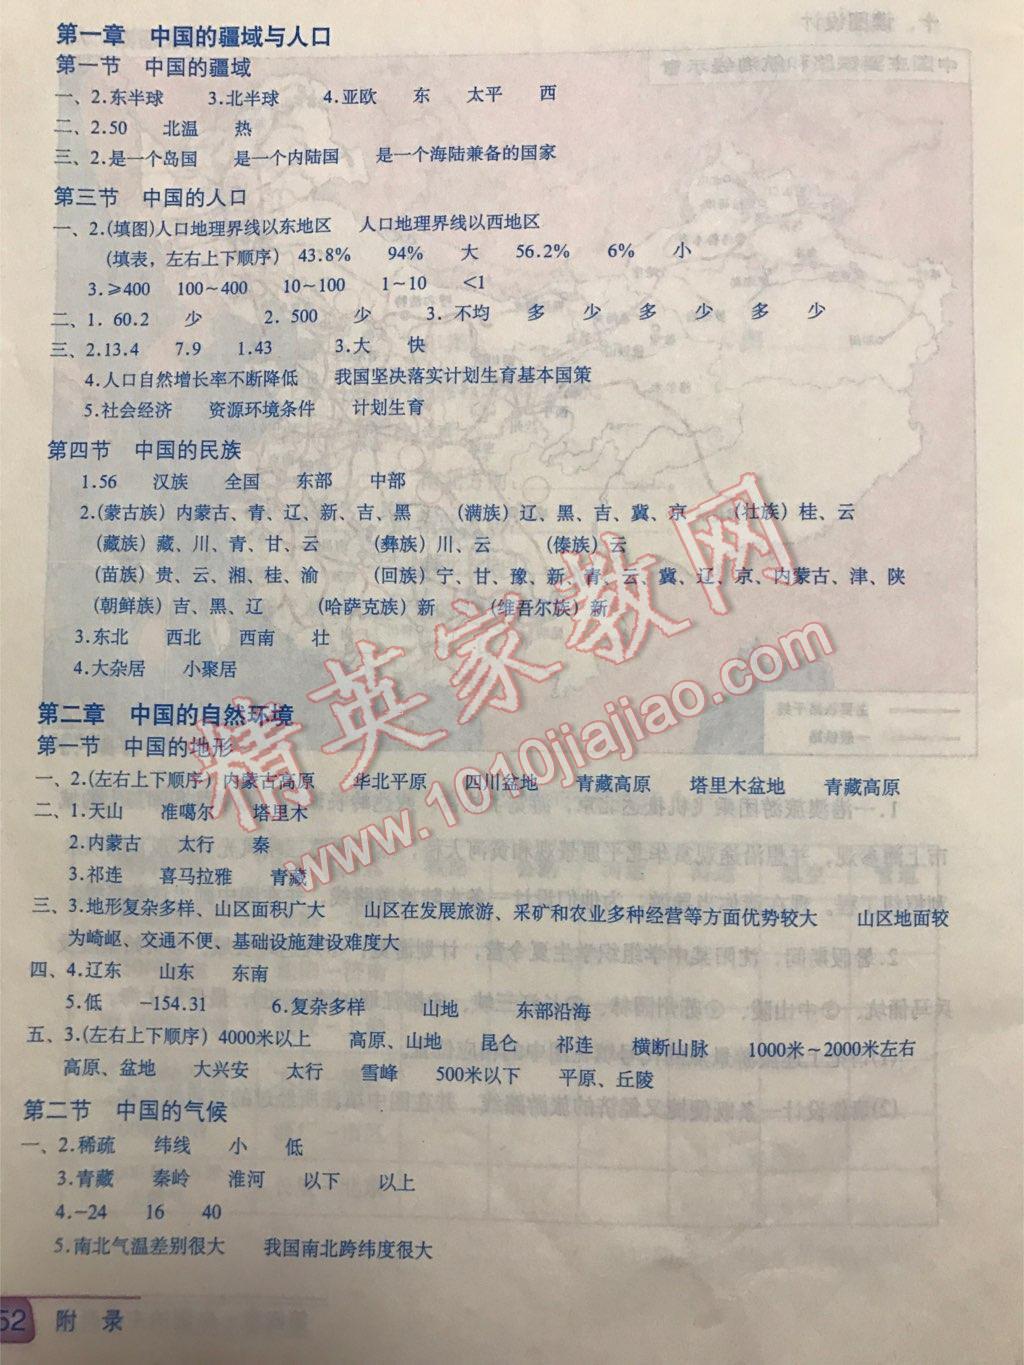 第一章　中国的疆域与人口
第一节　中国的疆域
一、2.东半球　3.北半球　4.亚欧　东　太平　西
二、2.50　北温　热
三、2.是一个岛国　是一个内陆国　是一个海陆兼备的国家
第三节　中国的人口
一、2.(填图)人口地理界线以东地区　人口地理界线以西地区
(填表，左右上下顺序)　43.8%　94%　大　56.2%　6%　小
3.≥400　100～400　10～100　1～10　<1
二、1. 60.2　少　2. 500　少　3. 不均　多　少　多　少　多　少
三、2.13.4　7.9　1.43　3.大　快
4.人口自然增长率不断降低　我国坚决落实计划生育基本国策
5.社会经济　资源环境条件　计划生育
第四节　中国的民族
1.56　汉族　全国　东部　中部
2.(蒙古族)内蒙古、青、辽、新、吉、黑　(满族)辽、黑、吉、冀、京　(壮族)桂、云
(藏族)藏、川、青、甘、云　(彝族)川、云　(傣族)云
(苗族)贵、云、湘、桂、渝　(回族)宁、甘、豫、新、青、云、冀、辽、京、内蒙古、津、陕
(朝鲜族)吉、黑、辽　(哈萨克族)新　(维吾尔族)新
3.东北　西北　西南　壮
4.大杂居　小聚居
第二章　中国的自然环境
第一节　中国的地形
一、2.(左右上下顺序)内蒙古高原　华北平原　四川盆地　青藏高原　塔里木盆地　青藏高原
二、1.天山　准噶尔　塔里木
2.内蒙古　太行　秦
3.祁连　喜马拉雅　青藏
三、3.地形复杂多样、山区面积广大　山区在发展旅游、采矿和农业多种经营等方面优势较大　山区地面较
为崎岖、交通不便、基础设施建设难度大
四、4.辽东　山东　东南
5.低　-154.31　6.复杂多样　山地　东部沿海
五、3.(左右上下顺序)4000米以上　高原、山地　昆仑　祁连　横断山脉　1000米～2000米左右
高原、盆地　大兴安　太行　雪峰　500米以下　平原、丘陵
第二节　中国的气候
一、2.稀疏　纬线　小　低
3.青藏　秦岭　淮河　以下　以上
4.-24　16　40
5.南北气温差别很大　我国南北跨纬度很大
52　附　录
精英家教网
www.1010jiajiao.com